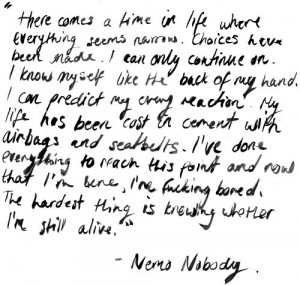 "There comes a time in life where
everything seems narrow. Choices have
been made. I can only continue on.
I know myself like the back of my hand.
I can predict my every reaction. My
life has been cast in cement with
airbags and seatbelts. I've done
everything to reach this point and now
that I'm here, I'm fucking bored.
The hardest thing is knowing whether
I'm still alive."
- Nemo Nobody.